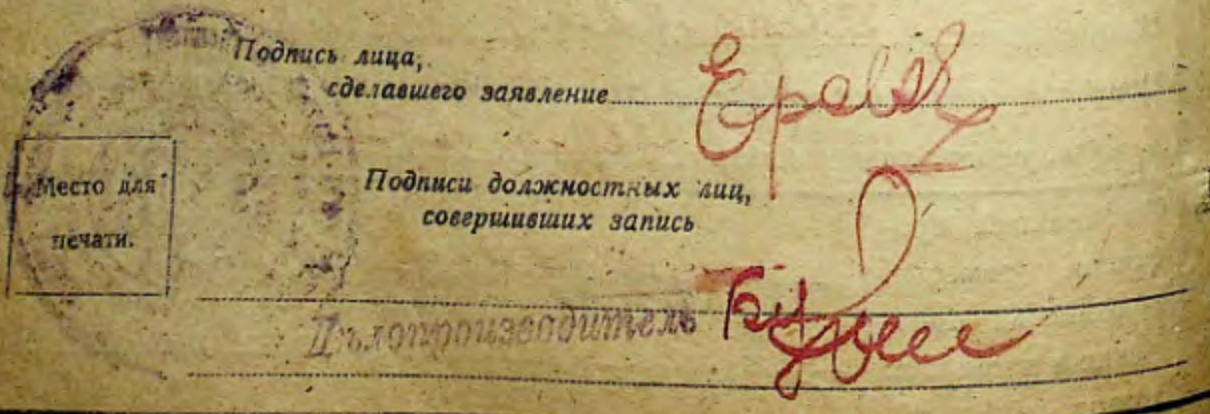 Подпись лица,
сделавшего заявление
Место для
печати.
Подписи должностных лиц,
совершивших запись
Дѣлопроизводитель